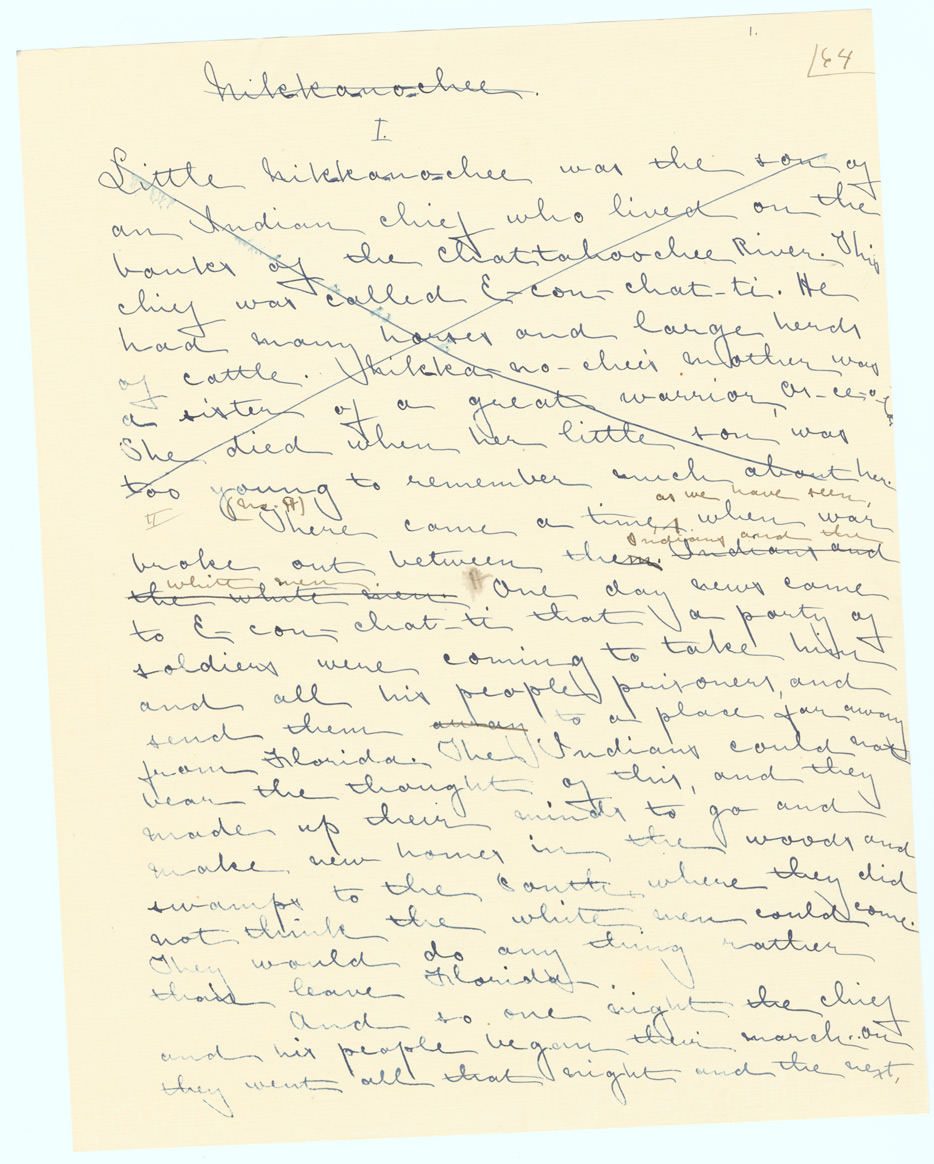 1.
64
Nikkanochee.
I.
Little Nik-ka-no-chee was the son of
an Indian chief who lived on the
banks of the Chattahoochee River. This
chief was called E-con-chat-ti. He
had many horses and large herds
of cattle. Nikka-no-chee's mother was
a sister of a great warrior, Os-ce-o-la.
She died when her little son was
too young to remember much about her.
II (no ¶) as we have seen,
There came a time, when war
Indians and the
broke out between them. Indians and
white men
the white men. One day news came
to E-con-chat-ti that a party of
soldiers were coming to take him
and all his people prisoners, and
send them away to a place far away
from Florida. The Indians could not
bear the thought of this, and they
made up their minds to go and
make new homes in the woods and
swamps to the South, where they did
not think the white men could come.
They would do any thing rather
than leave Florida.
And so one night the chief
and his people began their march. on
they went all that night and the next,